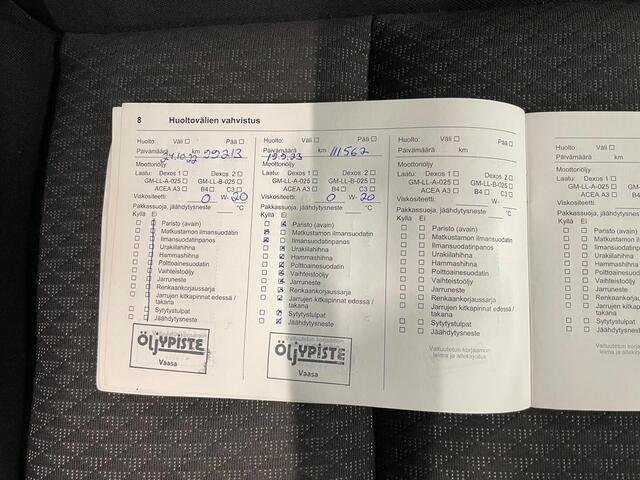 8 Huoltovälien vahvistus
Huolto: Väli ☐ Pää ☐
Päivämäärä km
24.10.22 99213
Moottoriöljy
Laatu: Dexos 1 ☐ Dexos 2 ☐
GM-LL-A-025 ☐ GM-LL-B-025 ☐
ACEA A3 ☐ B4 ☐ C3 ☐
Viskositeetti: 0 W- 20
Pakkassuoja, jäähdytysneste °C
Kyllä Ei
Paristo (avain)
Matkustamon ilmansuodatin
Ilmansuodatinpanos
Urakiilahihna
Hammashihna
Polttoainesuodatin
Vaihteistoöljy
Jarruneste
Renkaankorjaussarja
Jarrujen kitkapinnat edessä /
takana
Sytytystulpat
Jäähdytysneste
ÖLJYPISTE
Vaasa
Huolto: Väli ☐ Pää ☐
Päivämäärä km 111562
Moottoriöljy
Laatu: Dexos 1 ☐ Dexos 2 ☐
GM-LL-A-025 ☐ GM-LL-B-025 ☐
ACEA A3 ☐ B4 ☐ C3 ☐
Viskositeetti: 0 W- 20
Pakkassuoja, jäähdytysneste °C
Kyllä Ei
Paristo (avain)
Matkustamon ilmansuodatin
Ilmansuodatinpanos
Urakiilahihna
Hammashihna
Polttoainesuodatin
Vaihteistoöljy
Jarruneste
Renkaankorjaussarja
Jarrujen kitkapinnat edessä /
takana
Sytytystulpat
Jäähdytysneste
ÖLJYPISTE
Vaasa
Huolto: Väli ☐ Pää ☐
Päivämäärä km
Moottoriöljy
Laatu: Dexos 1 ☐ Dexos 2 ☐
GM-LL-A-025 ☐ GM-LL-B-025 ☐
ACEA A3 ☐ B4 ☐ C3 ☐
Viskositeetti: W-
Pakkassuoja, jäähdytysneste °C
Kyllä Ei
Paristo (avain)
Matkustamon ilmansuodatin
Ilmansuodatinpanos
Urakiilahihna
Hammashihna
Polttoainesuodatin
Vaihteistoöljy
Jarruneste
Renkaankorjaussarja
Jarrujen kitkapinnat edessä /
takana
Sytytystulpat
Jäähdytysneste
Valtuutetun korjaamon
leima ja allekirjoitus
Huolto: Väli ☐
Päivämäärä km
Moottoriöljy
Laatu: Dexos 1 ☐
GM-LL-A-025 ☐
ACEA A3 ☐
Viskositeetti:
Pakkassuoja, jäähdyt
Kyllä Ei
Paristo (avain)
Matkustamon
Ilmansuodatin
Urakiilahihna
Hammashihna
Polttoainesuo
Vaihteistoöljy
Jarruneste
Renkaankorja
Jarrujen kitka
takana
Sytytystulpat
Jäähdytysnes